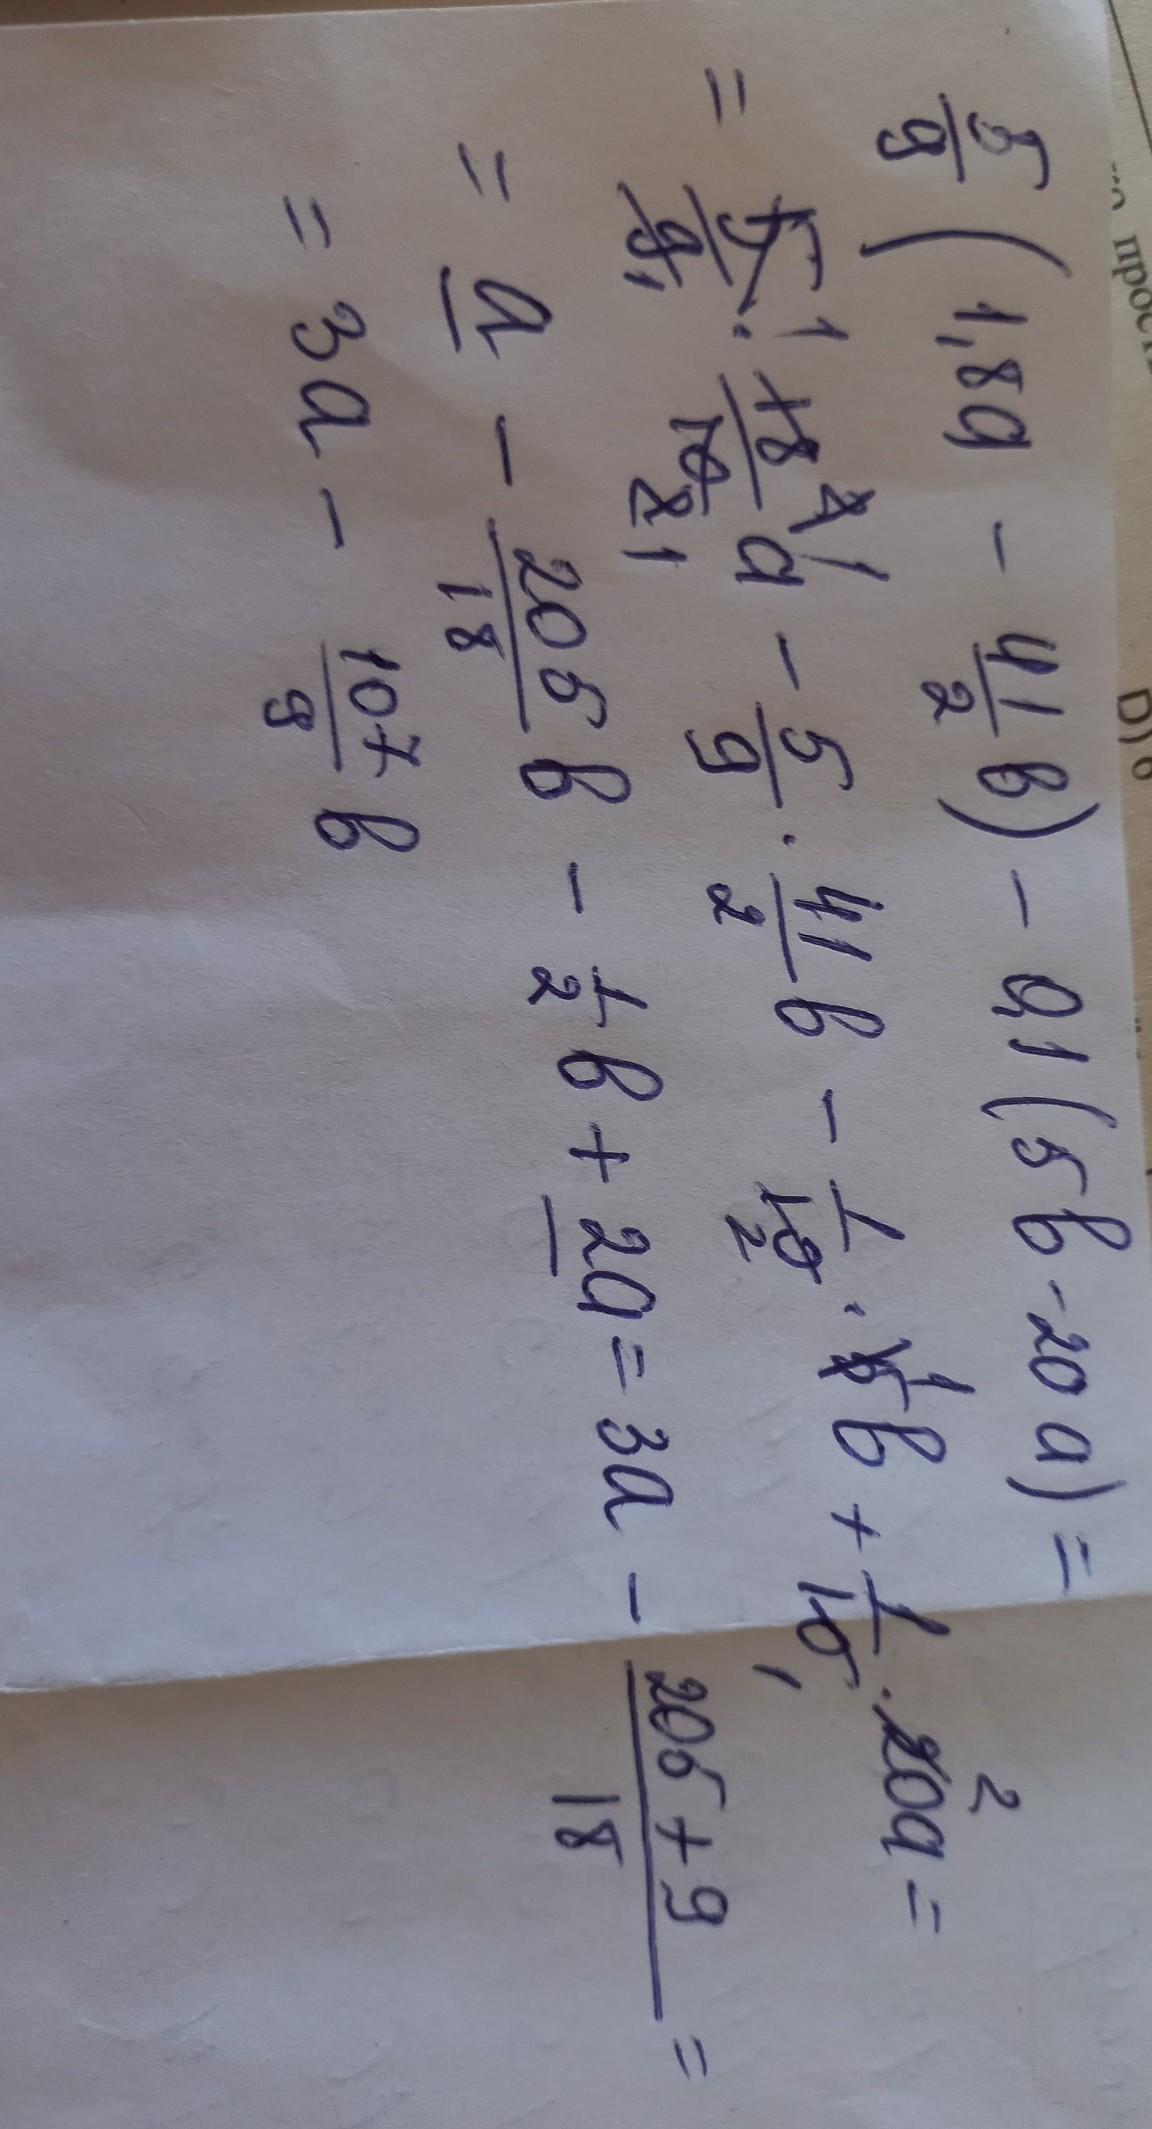 5/9 (1,8a - 41/2 b) - 0,1 (5b - 20a) =
= 5/9 · 18/10 a - 5/9 · 41/2 b - 1/10 · 5b + 1/10 · 20a =
= a - 205/18 b - 1/2 b + 2a = 3a - (205 + 9)/18 =
= 3a - 107/9 b
D) 6